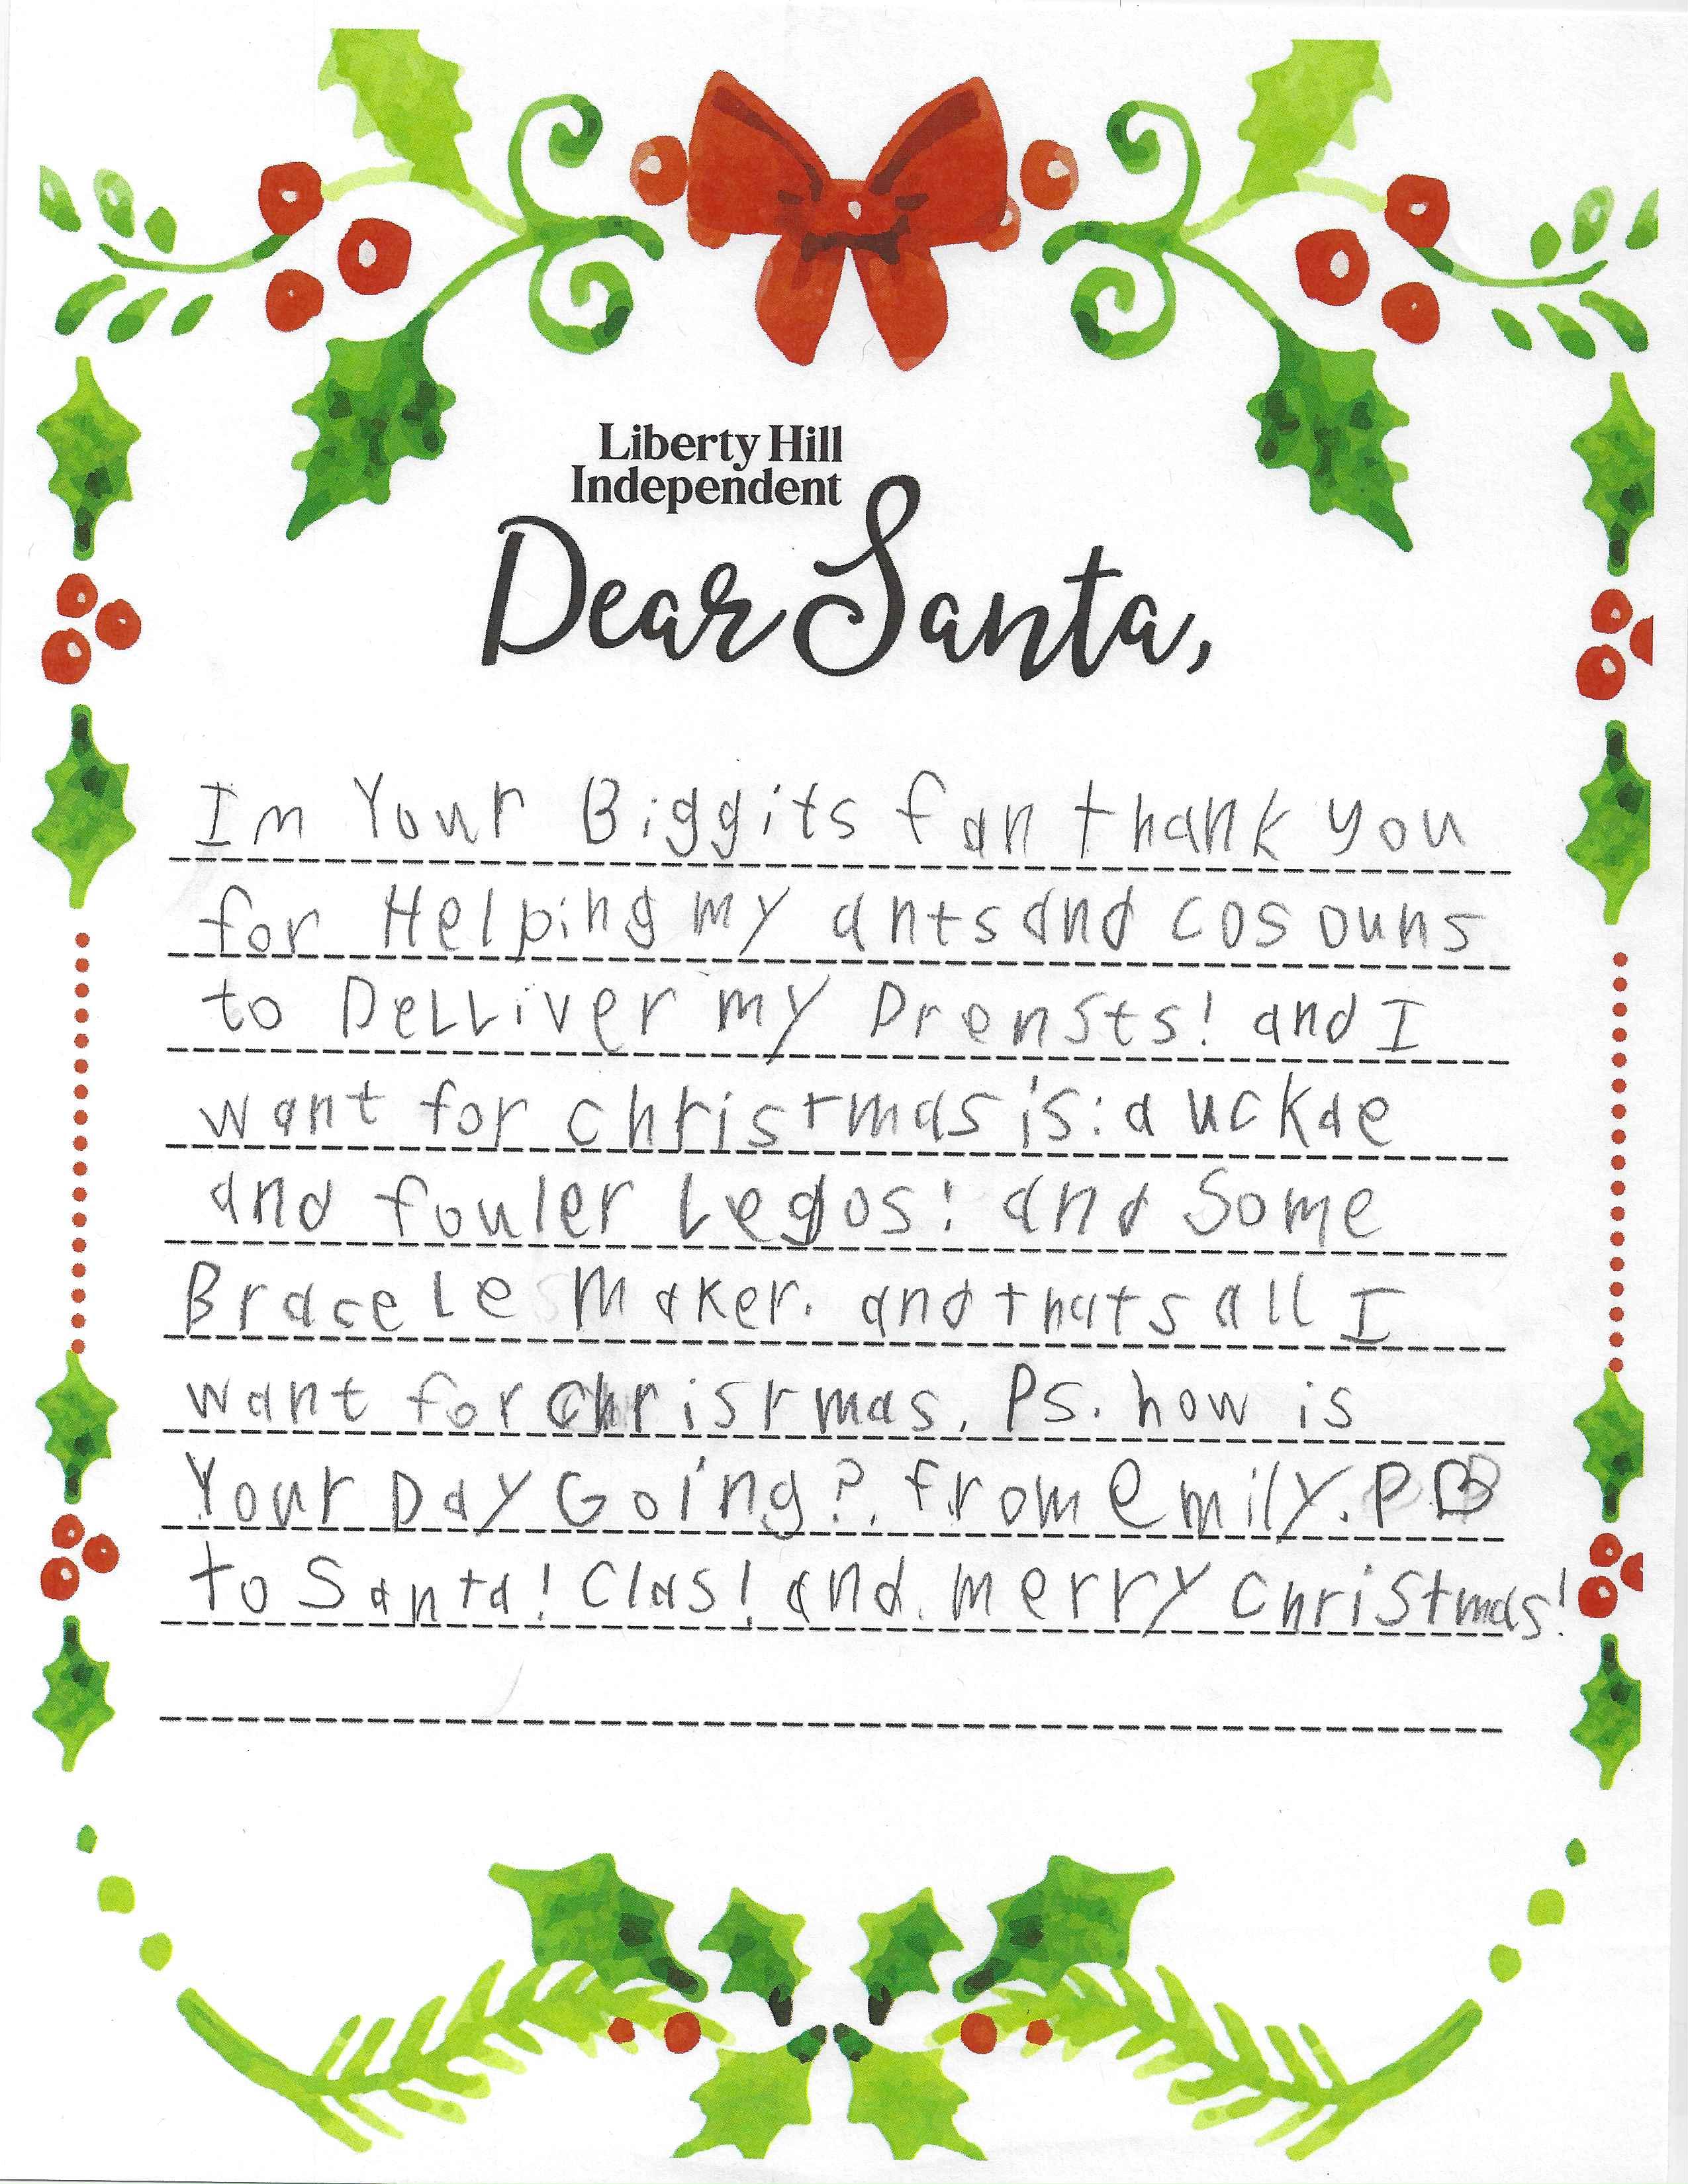 Liberty Hill
Independent
Dear Santa,
Im Your Biggits fan thank you
for Helping my ants and cosouns
to DeLLiver my Prensts! and I
want for christmas is: a uckae
and fouler Legos! and Some
BraceLe Maker. and thats all I
want for chrisrmas. Ps. how is
Your Day Going?. from emily. P B
to Santa! Clas! and. merry Christmas!